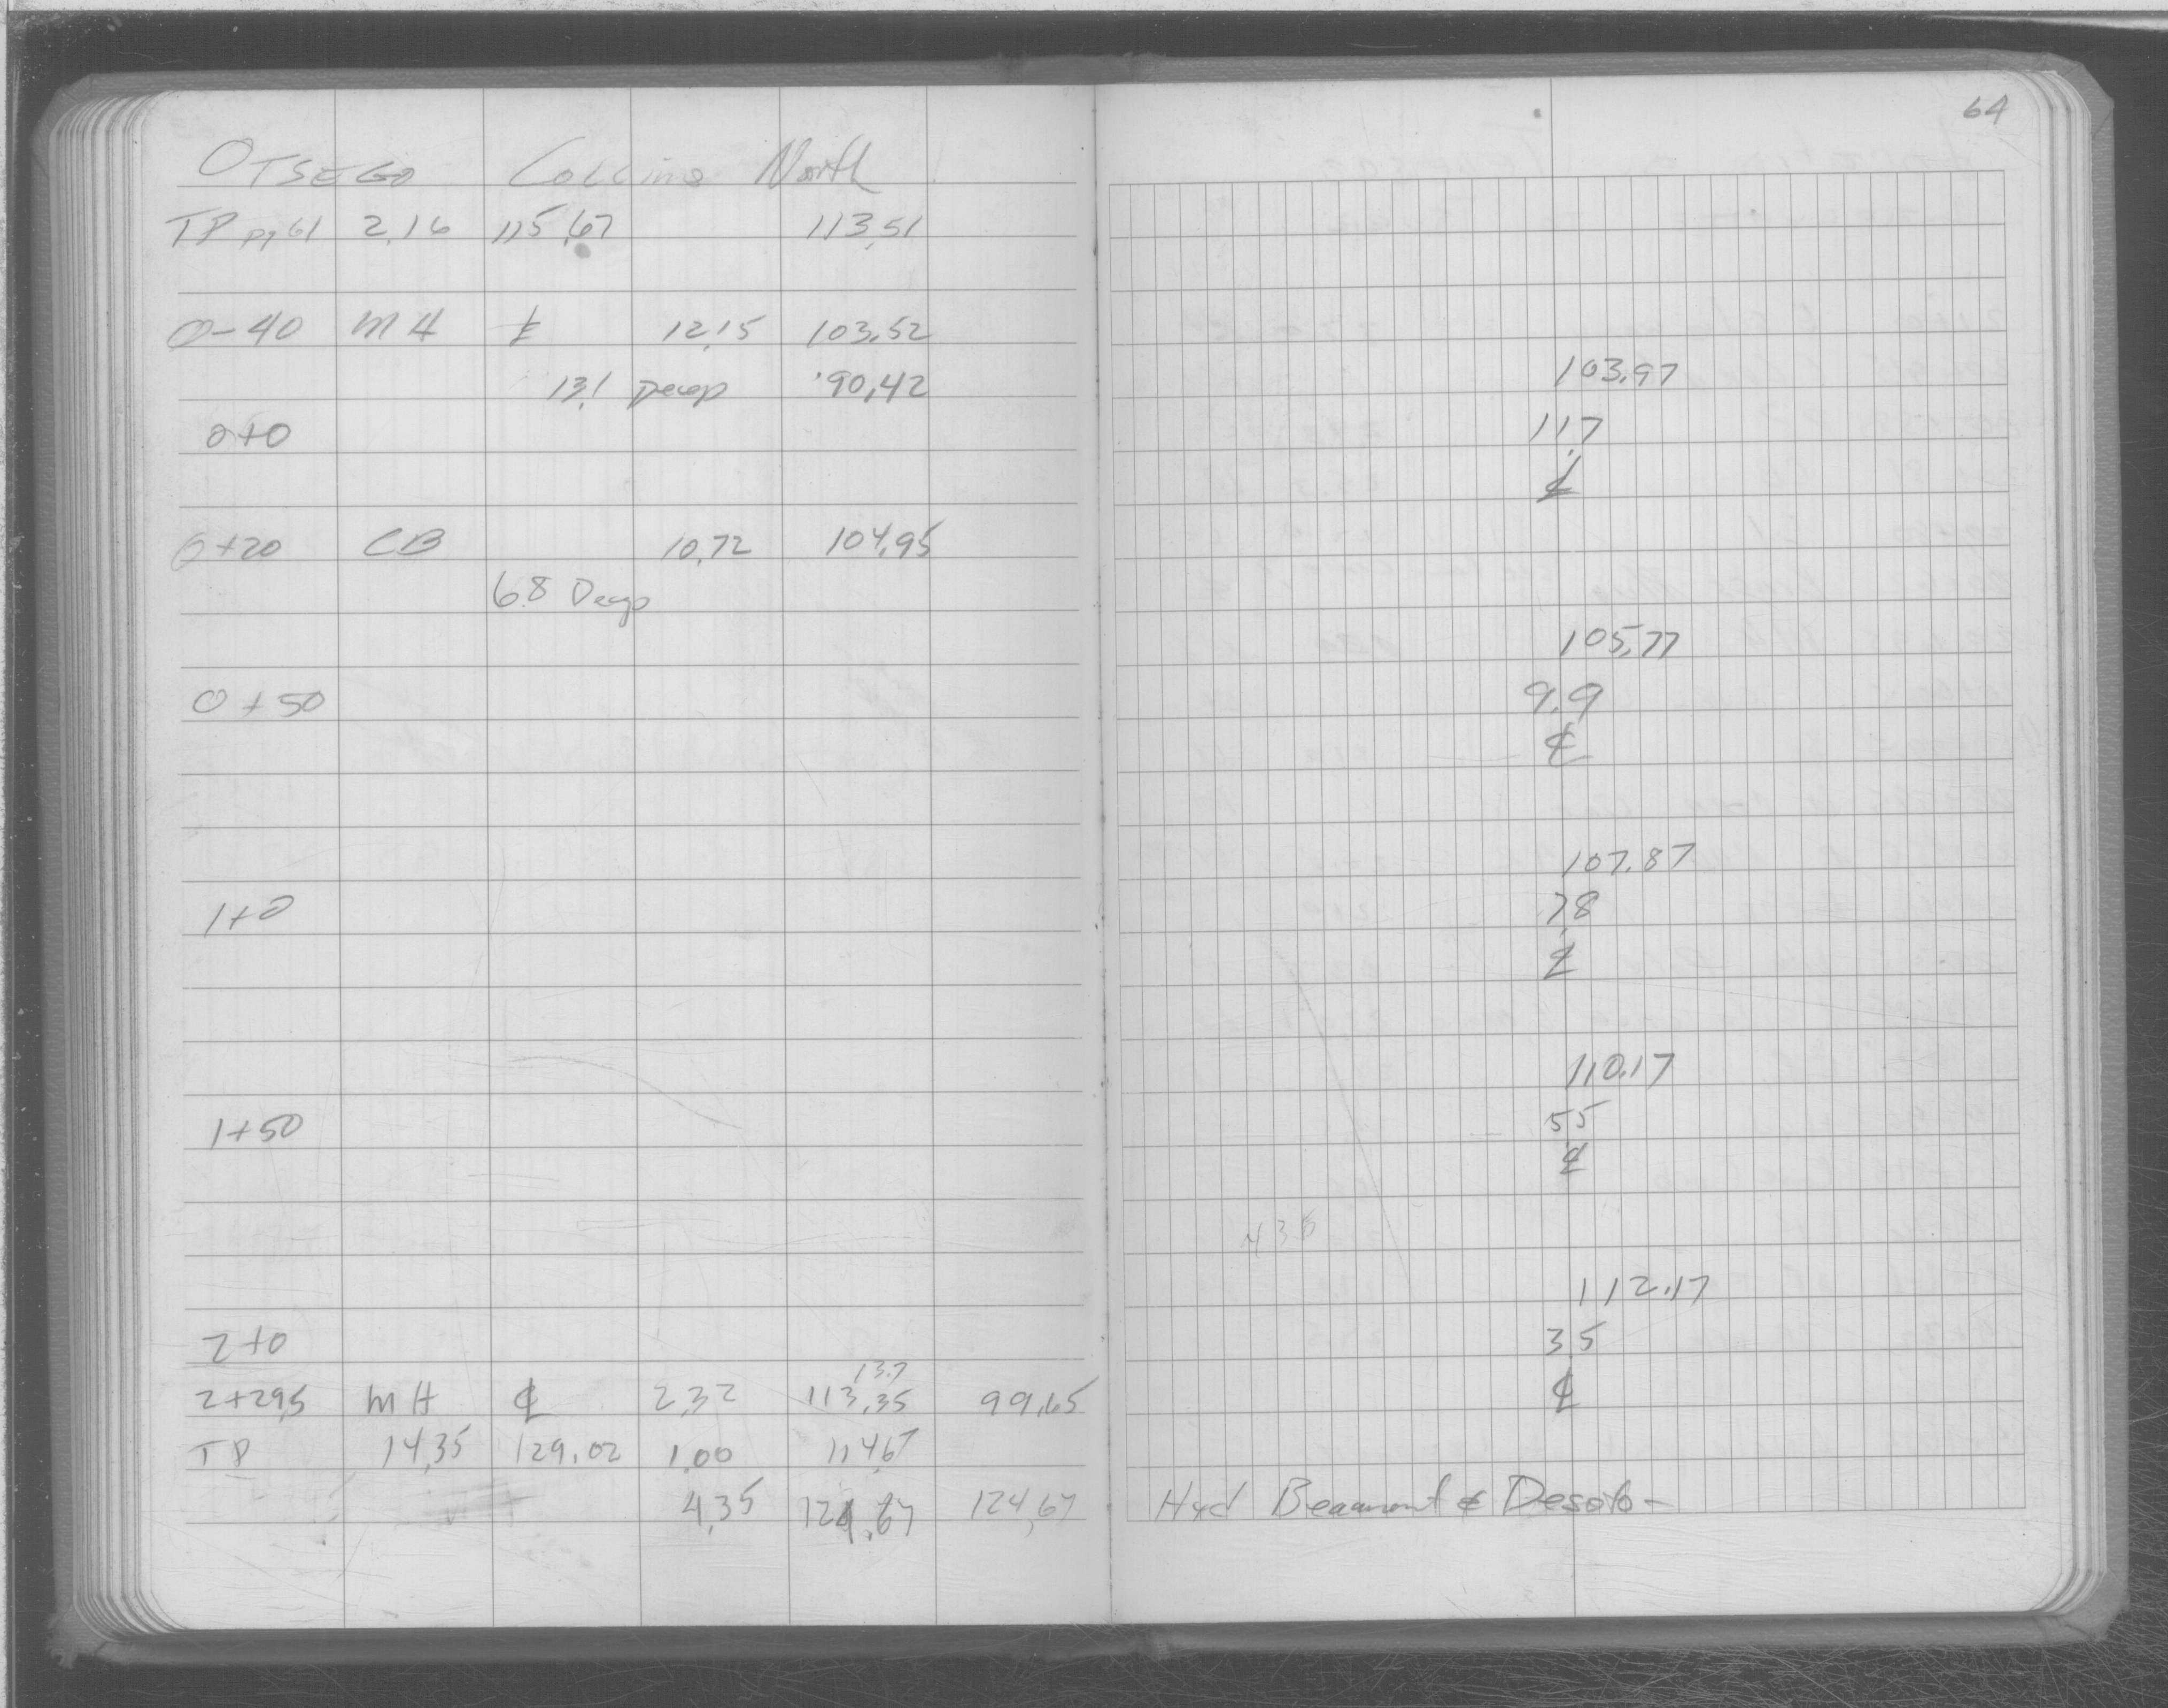 64
OTSEGO Collins North
TP pg 61 2.16 115.67 113.51
0-40 MH ℄ 12.15 103.52
13.1 Deep 90.42
0+0
0+20 CB 10.72 104.95
6.8 Deep
0+50
1+0
1+50
2+0
13.7
2+29.5 MH ℄ 2.32 113.35 99.65
TP 14.35 129.02 1.00 114.67
4.35 124.67 124.67
103.97
11.7
℄
105.77
9.9
℄
107.87
7.8
℄
110.17
5.5
℄
112.17
3.5
℄
Hyd Beaumont & Desoto-